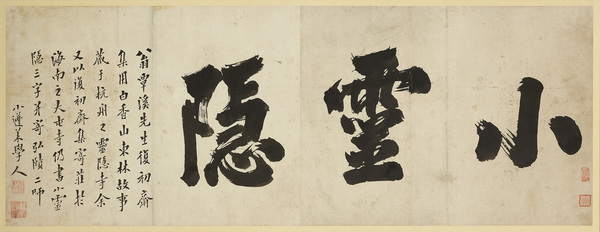 小靈隱
翁覃溪先生復初齋
集用白香山東林故事
藏于杭州之靈隱寺余
又以復初齋集寄莊於
海南之大士寺仍書小靈
隱三字并寄弘賾二師
小蓬萊學人